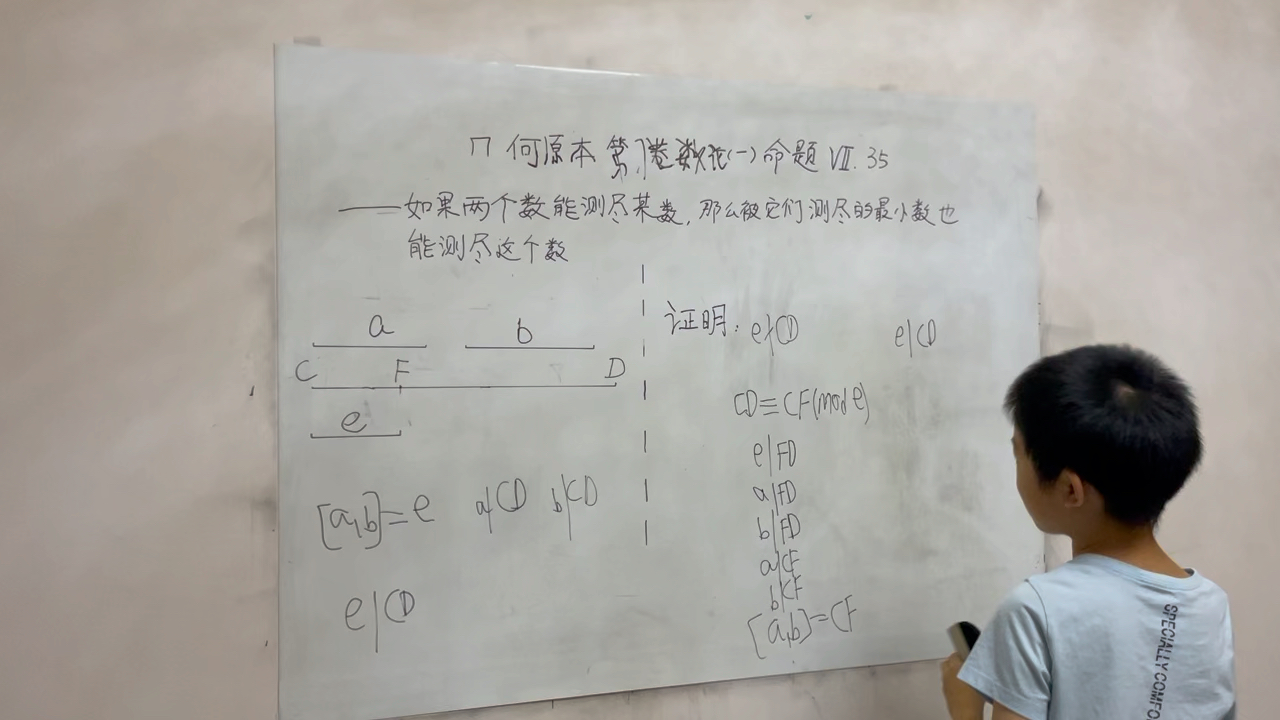 几何原本 第7卷数论(一)命题 VII.35
——如果两个数能测尽某数,那么被它们测尽的最小数也
能测尽这个数
a b
C F D
e
[a,b]=e a|CD b|CD
e|CD
证明: e∤CD e|CD
CD≡CF(mod e)
e|FD
a|FD
b|FD
a|CF
b|CF
[a,b]=CF
SPECIALLY COMFO